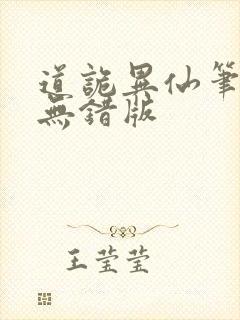 道詭異仙筆
無錯版
王莹莹